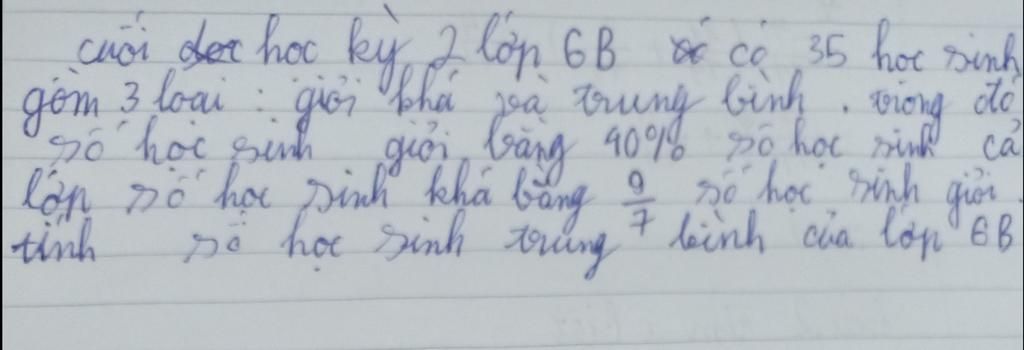 cuối học kỳ 2 lớp 6B có 35 học sinh
gồm 3 loại : giỏi khá và trung bình . trong đó
số học sinh giỏi bằng 40% số học sinh cả
lớp số học sinh khá bằng 9/7 số học sinh giỏi .
tính số học sinh trung bình của lớp 6B